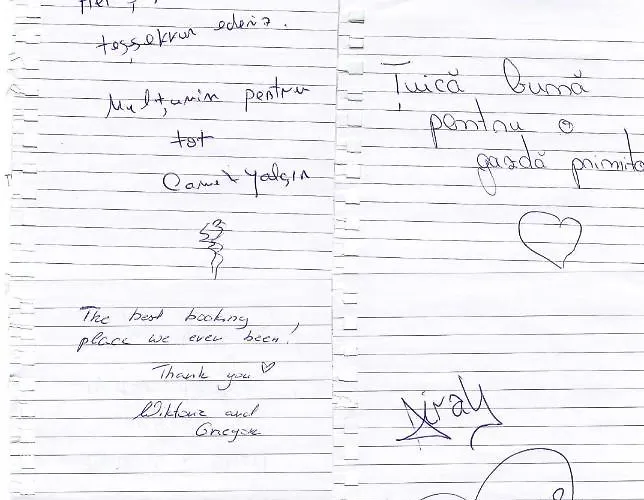 teşşekrur ederiz.
Mulțumin pentru
tot
Yalçın
The best booking
place we ever been!
Thank you
Wiktoria and
Țuică bună
pentru o
gazdă primito